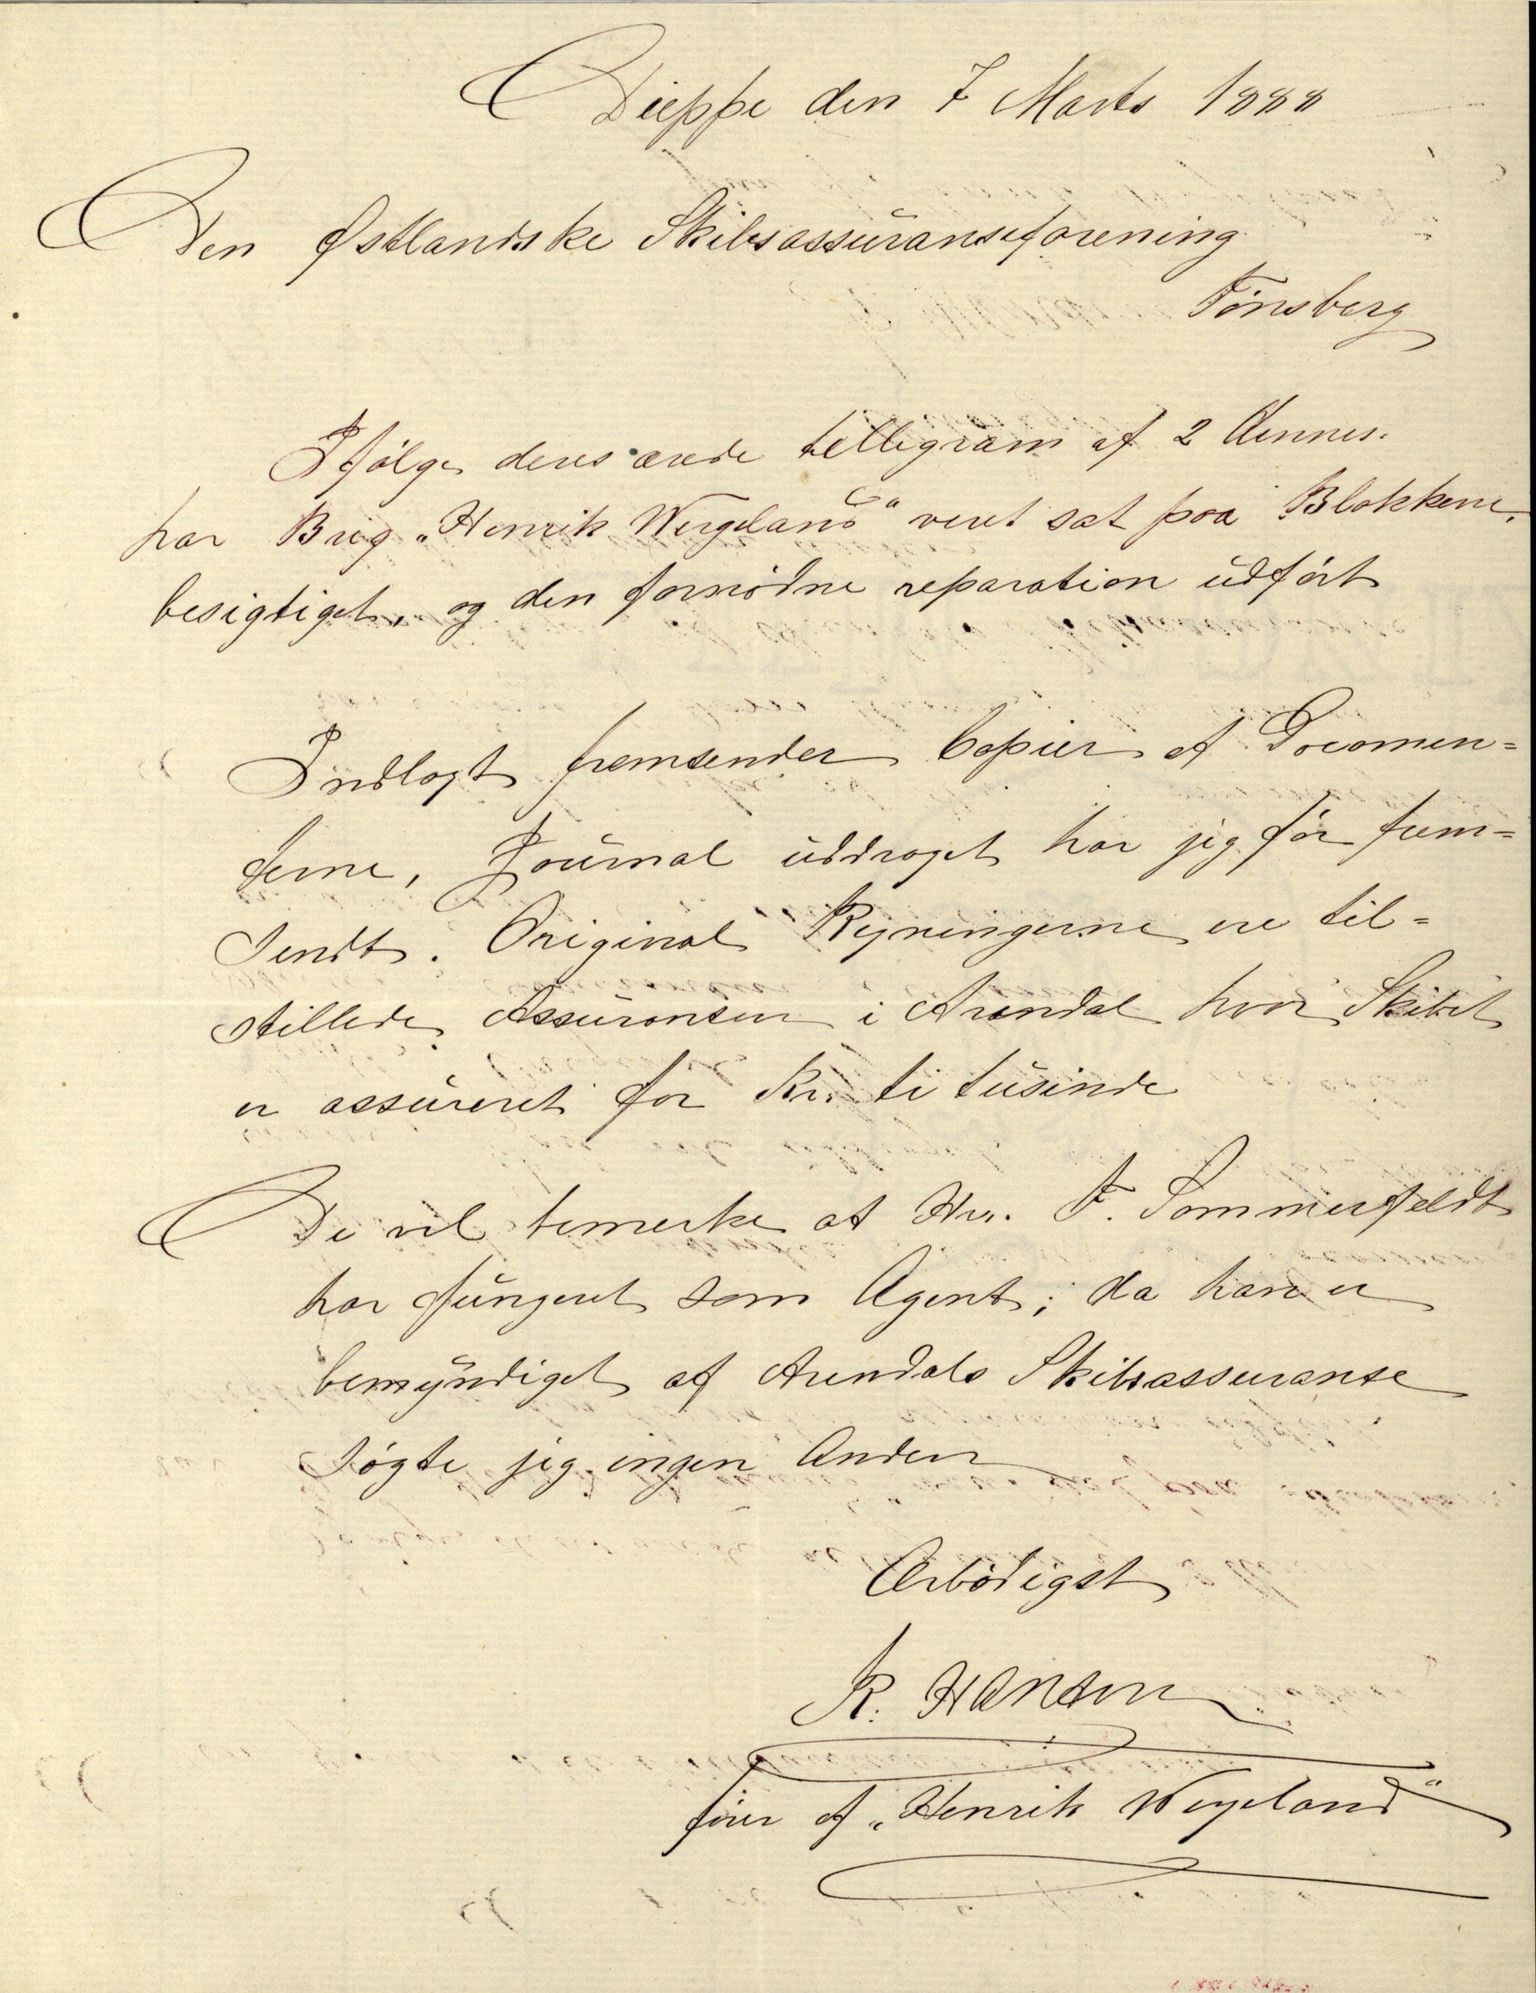 Dieppe den 7 Marts 1888
Den Østlandske Skibsassüranseforening
Tønsberg
Ifølge deres ærede tellegram af 2 dennes.
har Brig „Henrik Wergeland" veret sat paa Blokkene,
besigtiget, og den fornødne reparation üdført
Indlagt fremsender Copier af Documen=
terne, Joürnal üddraget har jeg før frem=
sendt. Original Regningerne ere til=
stillede Assüransen i Arendal hvor Skibet
er assüreret for Kr. ti tüsinde
De vil bemerke at Hr. F. Sommerfeldt
har füngeret som Agent; da han er
bemÿndiget af Arendals Skibsassuranse
søgte jeg ingen Anden
Ærbødigst
K. Hansen
fører af „Henrik Wergeland"